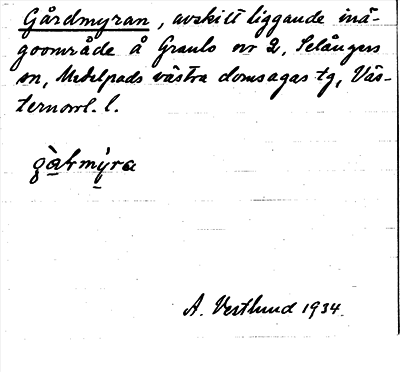 Gårdmyran, avskilt liggande inä-
goområde å Granlo nr 2, Selångers
sn, Medelpads västra domsagas tg, Väs-
ternorrl. l.
A. Vestlund 1934.